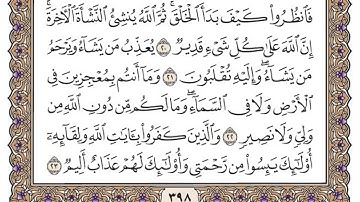 فَٱنظُرُوا۟ كَيْفَ بَدَأَ ٱلْخَلْقَ ۚ ثُمَّ ٱللَّهُ يُنشِئُ ٱلنَّشْأَةَ ٱلْءَاخِرَةَ ۚ
إِنَّ ٱللَّهَ عَلَىٰ كُلِّ شَىْءٍ قَدِيرٌ ٢٠ يُعَذِّبُ مَن يَشَآءُ وَيَرْحَمُ
مَن يَشَآءُ ۖ وَإِلَيْهِ تُقْلَبُونَ ٢١ وَمَآ أَنتُم بِمُعْجِزِينَ فِى
ٱلْأَرْضِ وَلَا فِى ٱلسَّمَآءِ ۖ وَمَا لَكُم مِّن دُونِ ٱللَّهِ مِن
وَلِىٍّ وَلَا نَصِيرٍ ٢٢ وَٱلَّذِينَ كَفَرُوا۟ بِـَٔايَـٰتِ ٱللَّهِ وَلِقَآئِهِۦٓ
أُو۟لَـٰٓئِكَ يَئِسُوا۟ مِن رَّحْمَتِى وَأُو۟لَـٰٓئِكَ لَهُمْ عَذَابٌ أَلِيمٌ ٢٣
٣٩٨